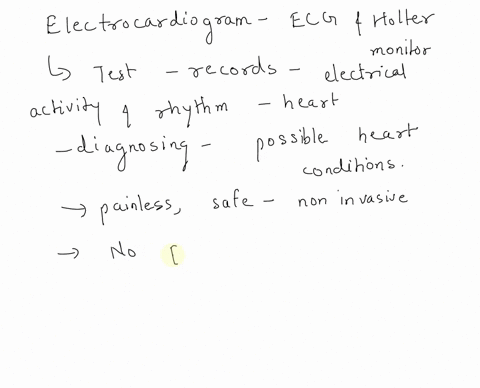 Electrocardiogram - ECG & Holter
monitor
↳ Test - records - electrical
activity & rhythm - heart
- diagnosing - possible heart
conditions.
→ painless, safe - non invasive
→ No [